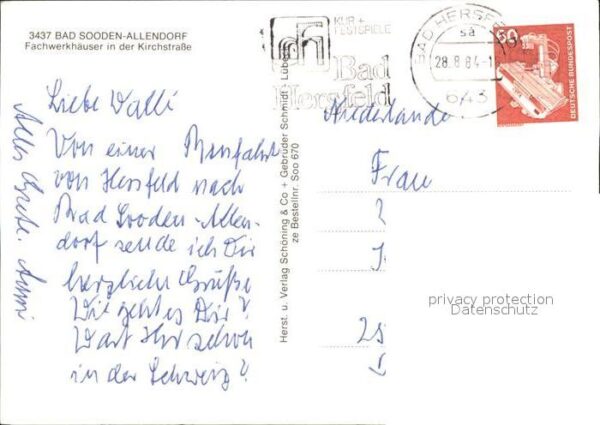 3437 BAD SOODEN-ALLENDORF
Fachwerkhäuser in der Kirchstraße
Liebe Walli
Von einer Busfahrt
von Hersfeld nach
Bad Sooden-Allen-
dorf sende ich Dir
herzliche Grüße
Wie geht es Dir?
Wart Ihr schon
in der Schweiz?
Alles Gute. Anni
Herst. u. Verlag Schöning & Co + Gebrüder Schmidt, Lübeck
ze Bestellnr. Soo 670
KUR +
FESTSPIELE
Bad
Hersfeld
BAD HERSFELD
sa
28.8.84-1
643
60
DEUTSCHE BUNDESPOST
Niederlande
Frau
privacy protection
Datenschutz